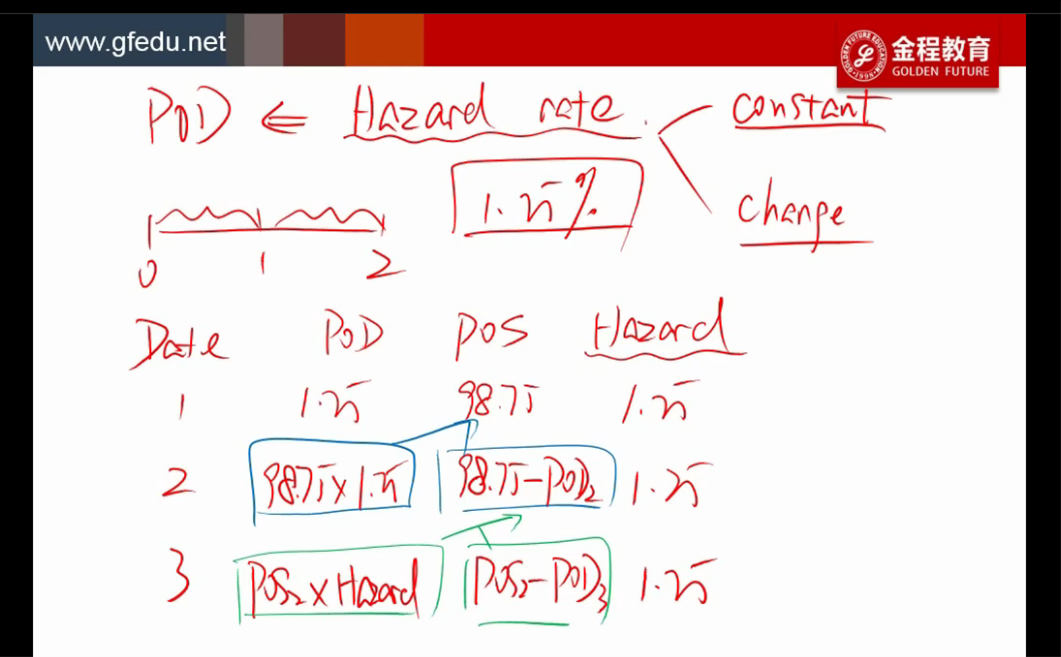 www.gfedu.net
金程教育
GOLDEN FUTURE
GOLDEN FUTURE EDUCATION
·1998·
POD ⇐ Hazard rate. constant
1.25%
change
0 1 2
Date POD POS Hazard
1 1.25 98.75 1.25
2 98.75×1.25 98.75-POD₂ 1.25
3 POS₂×Hazard POS₂-POD₃ 1.25